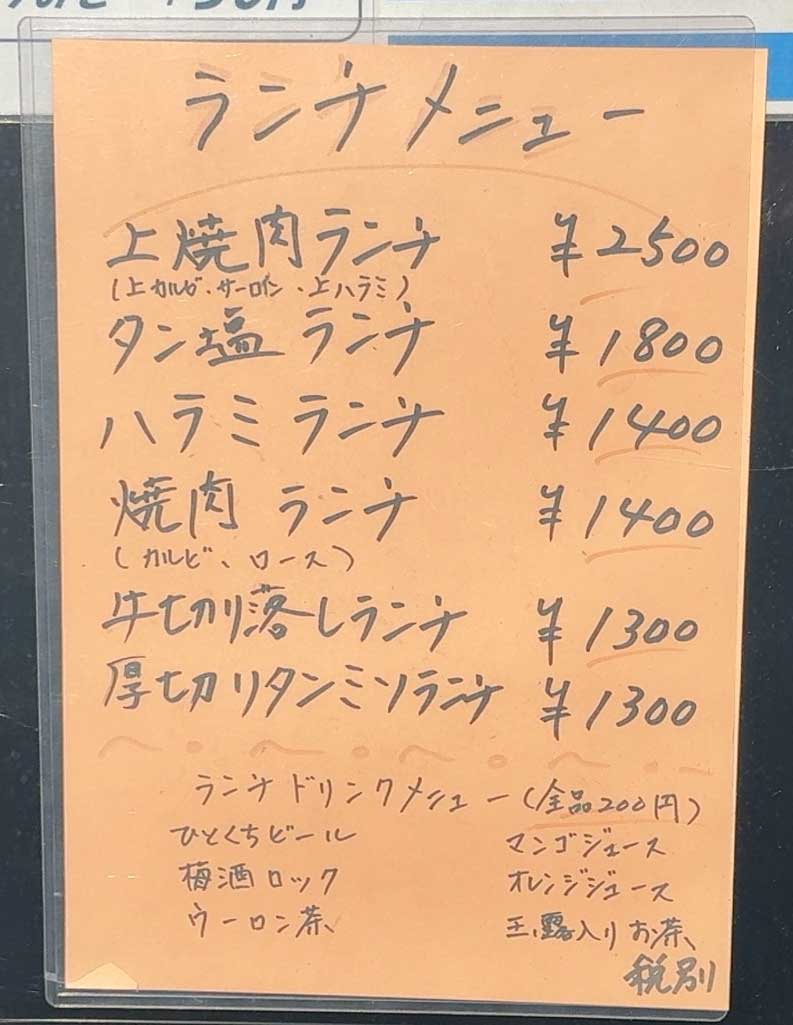 ランチメニュー
上焼肉ランチ ¥2500
(上カルビ・サーロイン・上ハラミ)
タン塩 ランチ ¥1800
ハラミ ランチ ¥1400
焼肉 ランチ ¥1400
(カルビ、ロース)
牛切り落しランチ ¥1300
厚切りタンミソランチ ¥1300
ランチドリンクメニュー(全品200円)
ひとくちビール マンゴジュース
梅酒ロック オレンジジュース
ウーロン茶 玉露入りお茶
税別